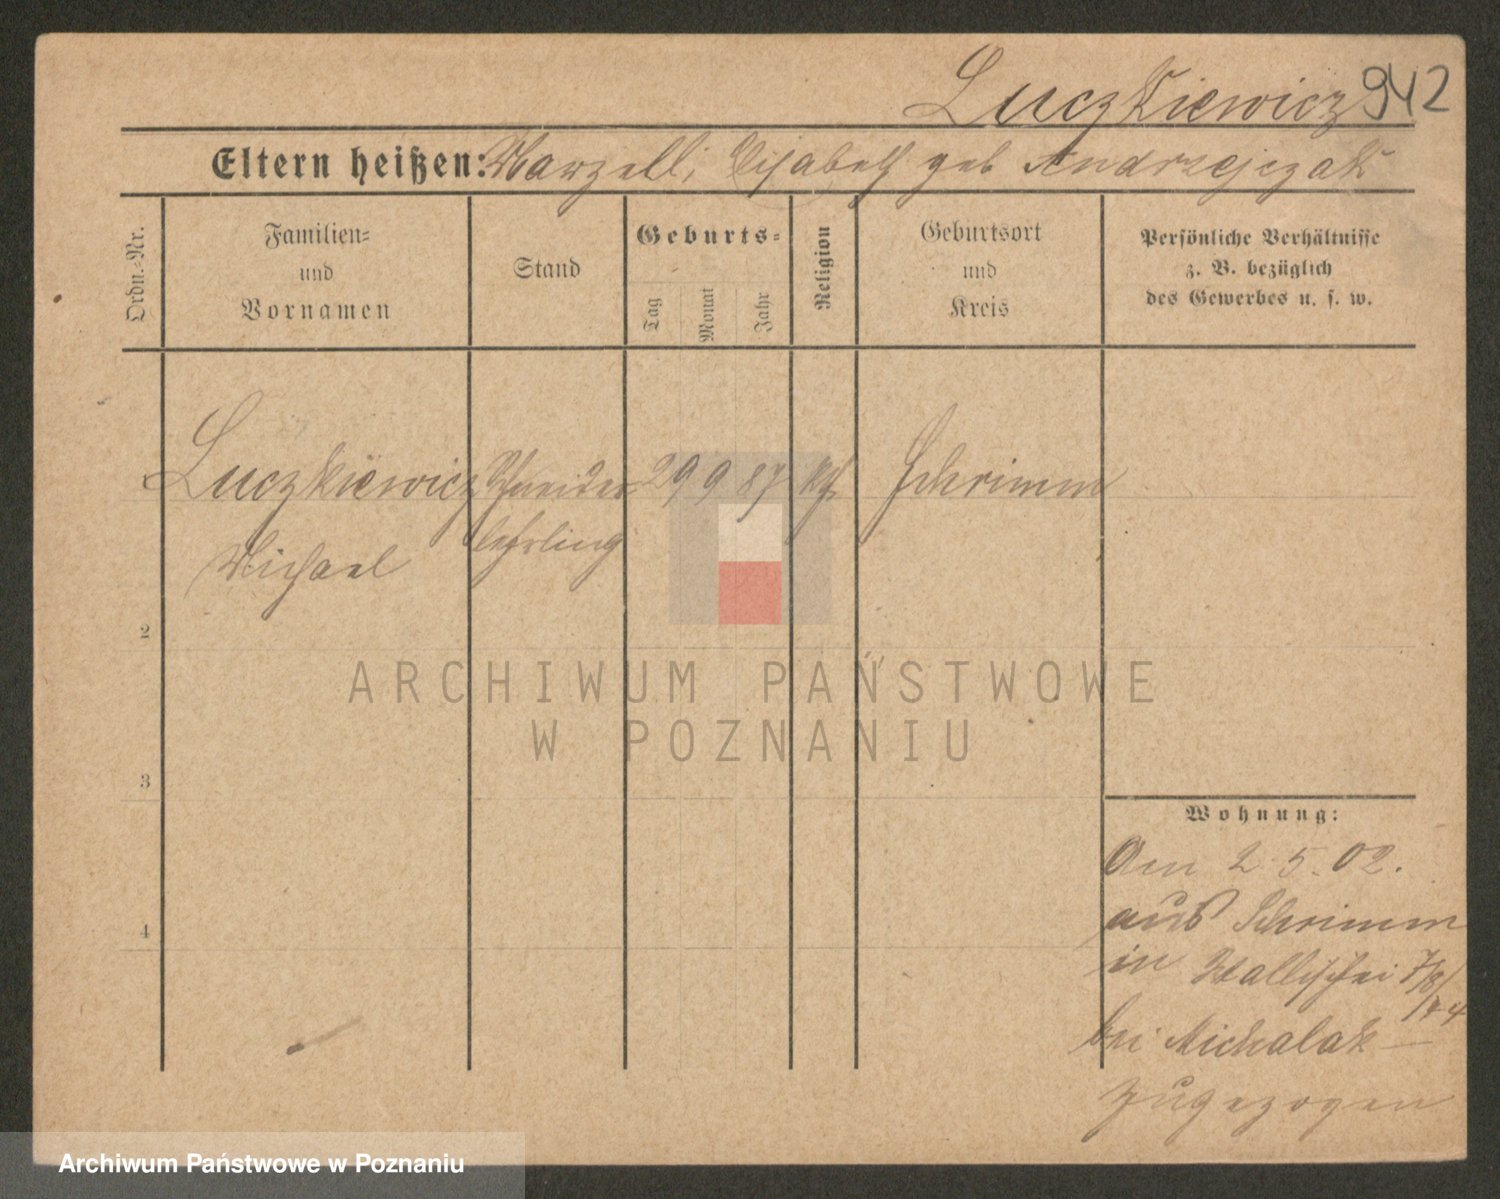 Luczkiewicz 942
Eltern heißen: Marzelli, Elisabeth geb Andrzejczak
Ordn.-Nr.
Familien-
und
Vornamen
Stand
Geburts-
Tag
Monat
Jahr
Religion
Geburtsort
und
Kreis
Persönliche Verhältnisse
z. B. bezüglich
des Gewerbes u. s. w.
Luczkiewicz Schneider 29 9 87 kth Schrimm
Michael lehrling
2
3
4
ARCHIWUM PAŃSTWOWE
W POZNANIU
Wohnung:
Am 2.5.02.
aus Schrimm
in Wallischei 7/8
bei Michalak
zugezogen
Archiwum Państwowe w Poznaniu